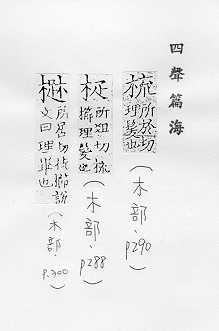 四聲篇海
梳
所於切
理髮也
(木部·p290)
所沮切梳
理髮也
(木部·p288)
所居切
文曰理髮也
(木部·p.300)